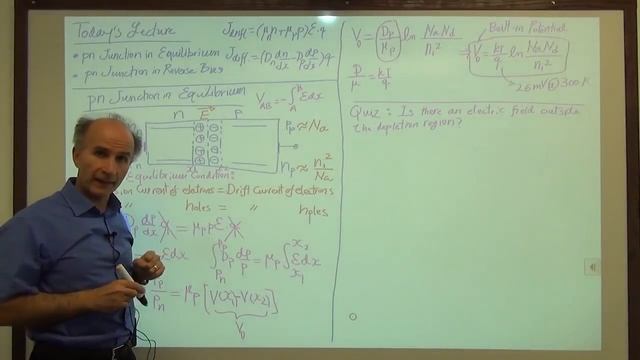 Today's Lecture
• pn Junction in Equilibrium
• pn Junction in Reverse Bias
J_drift = (μ_n n + μ_p p) ε . q
J_diff = (D_n dn/dx - D_p dp/dx) q
pn Junction in Equilibrium
V_AB = -∫ ε dx
n E p
p_p ≈ N_a
n_p ≈ n_i²/N_a
Equilibrium Condition:
Current of electrons = Drift Current of electrons
" holes = " holes
dp/dx q = μ_p p ε q
εdx
∫_{p_n}^{p_p} D_p dp/p = μ_p ∫_{x_1}^{x_2} ε dx
p_n = μ_p [V(x_1) - V(x_2)]
V_0
V_0 = D_p/μ_p ln N_a N_d / n_i²
Built-in Potential
⇒ V_0 = kT/q ln N_a N_d / n_i²
D/μ = kT/q
26mV @ 300 K
Quiz: Is there an electric field outside
the depletion region?